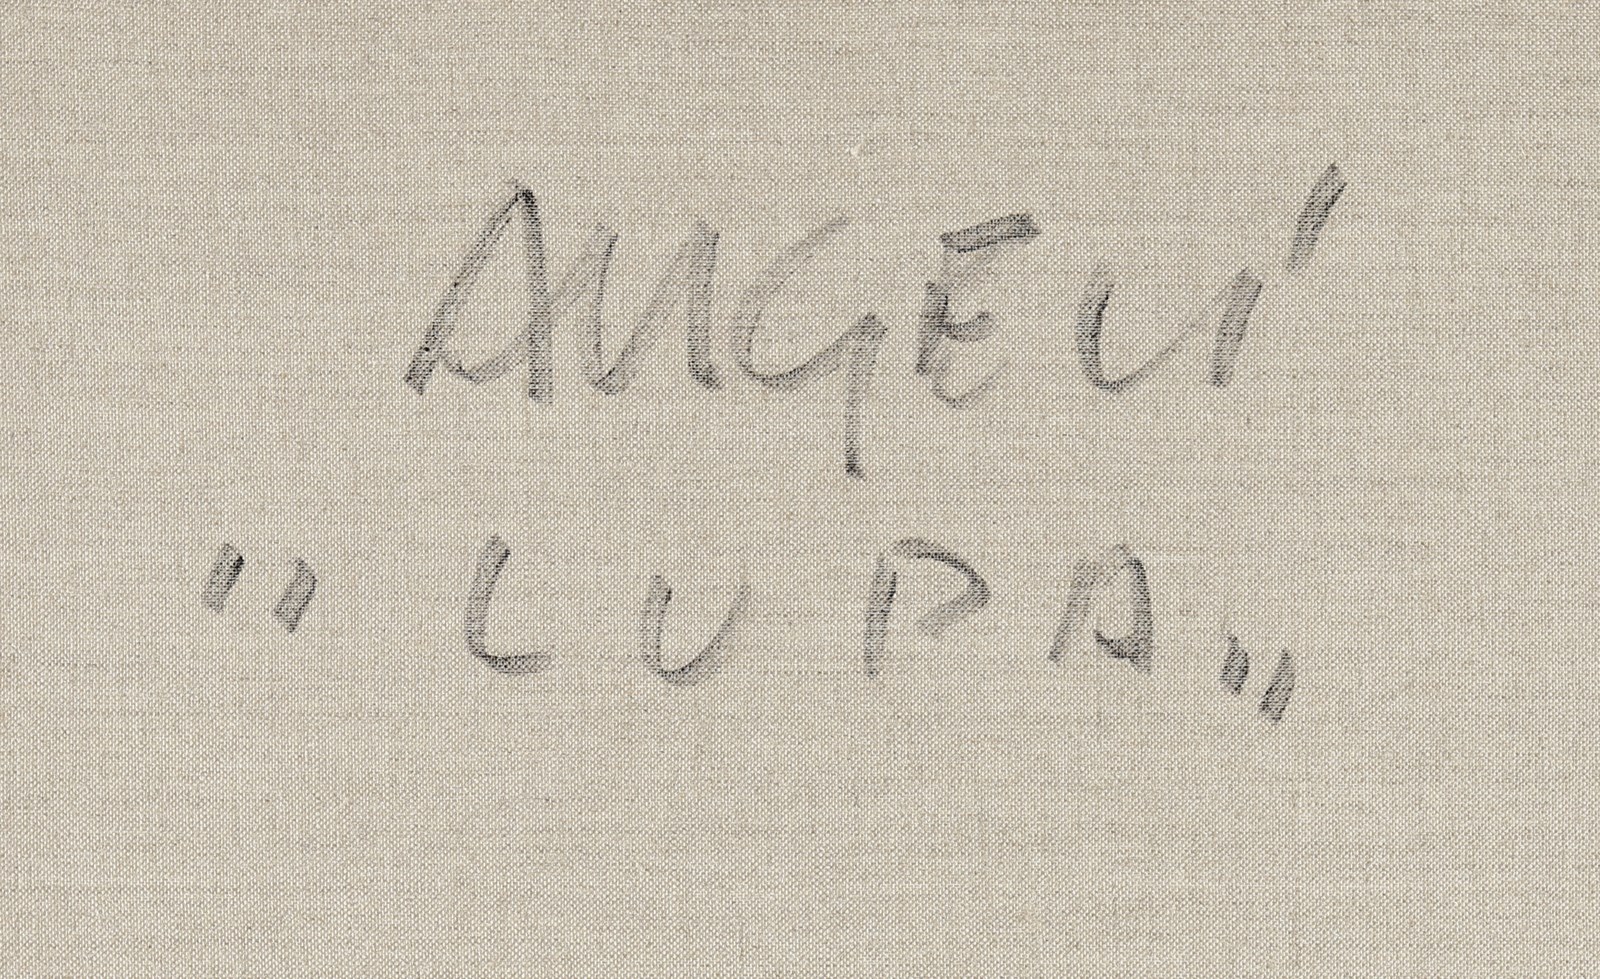 ANGELI
" LUPA „